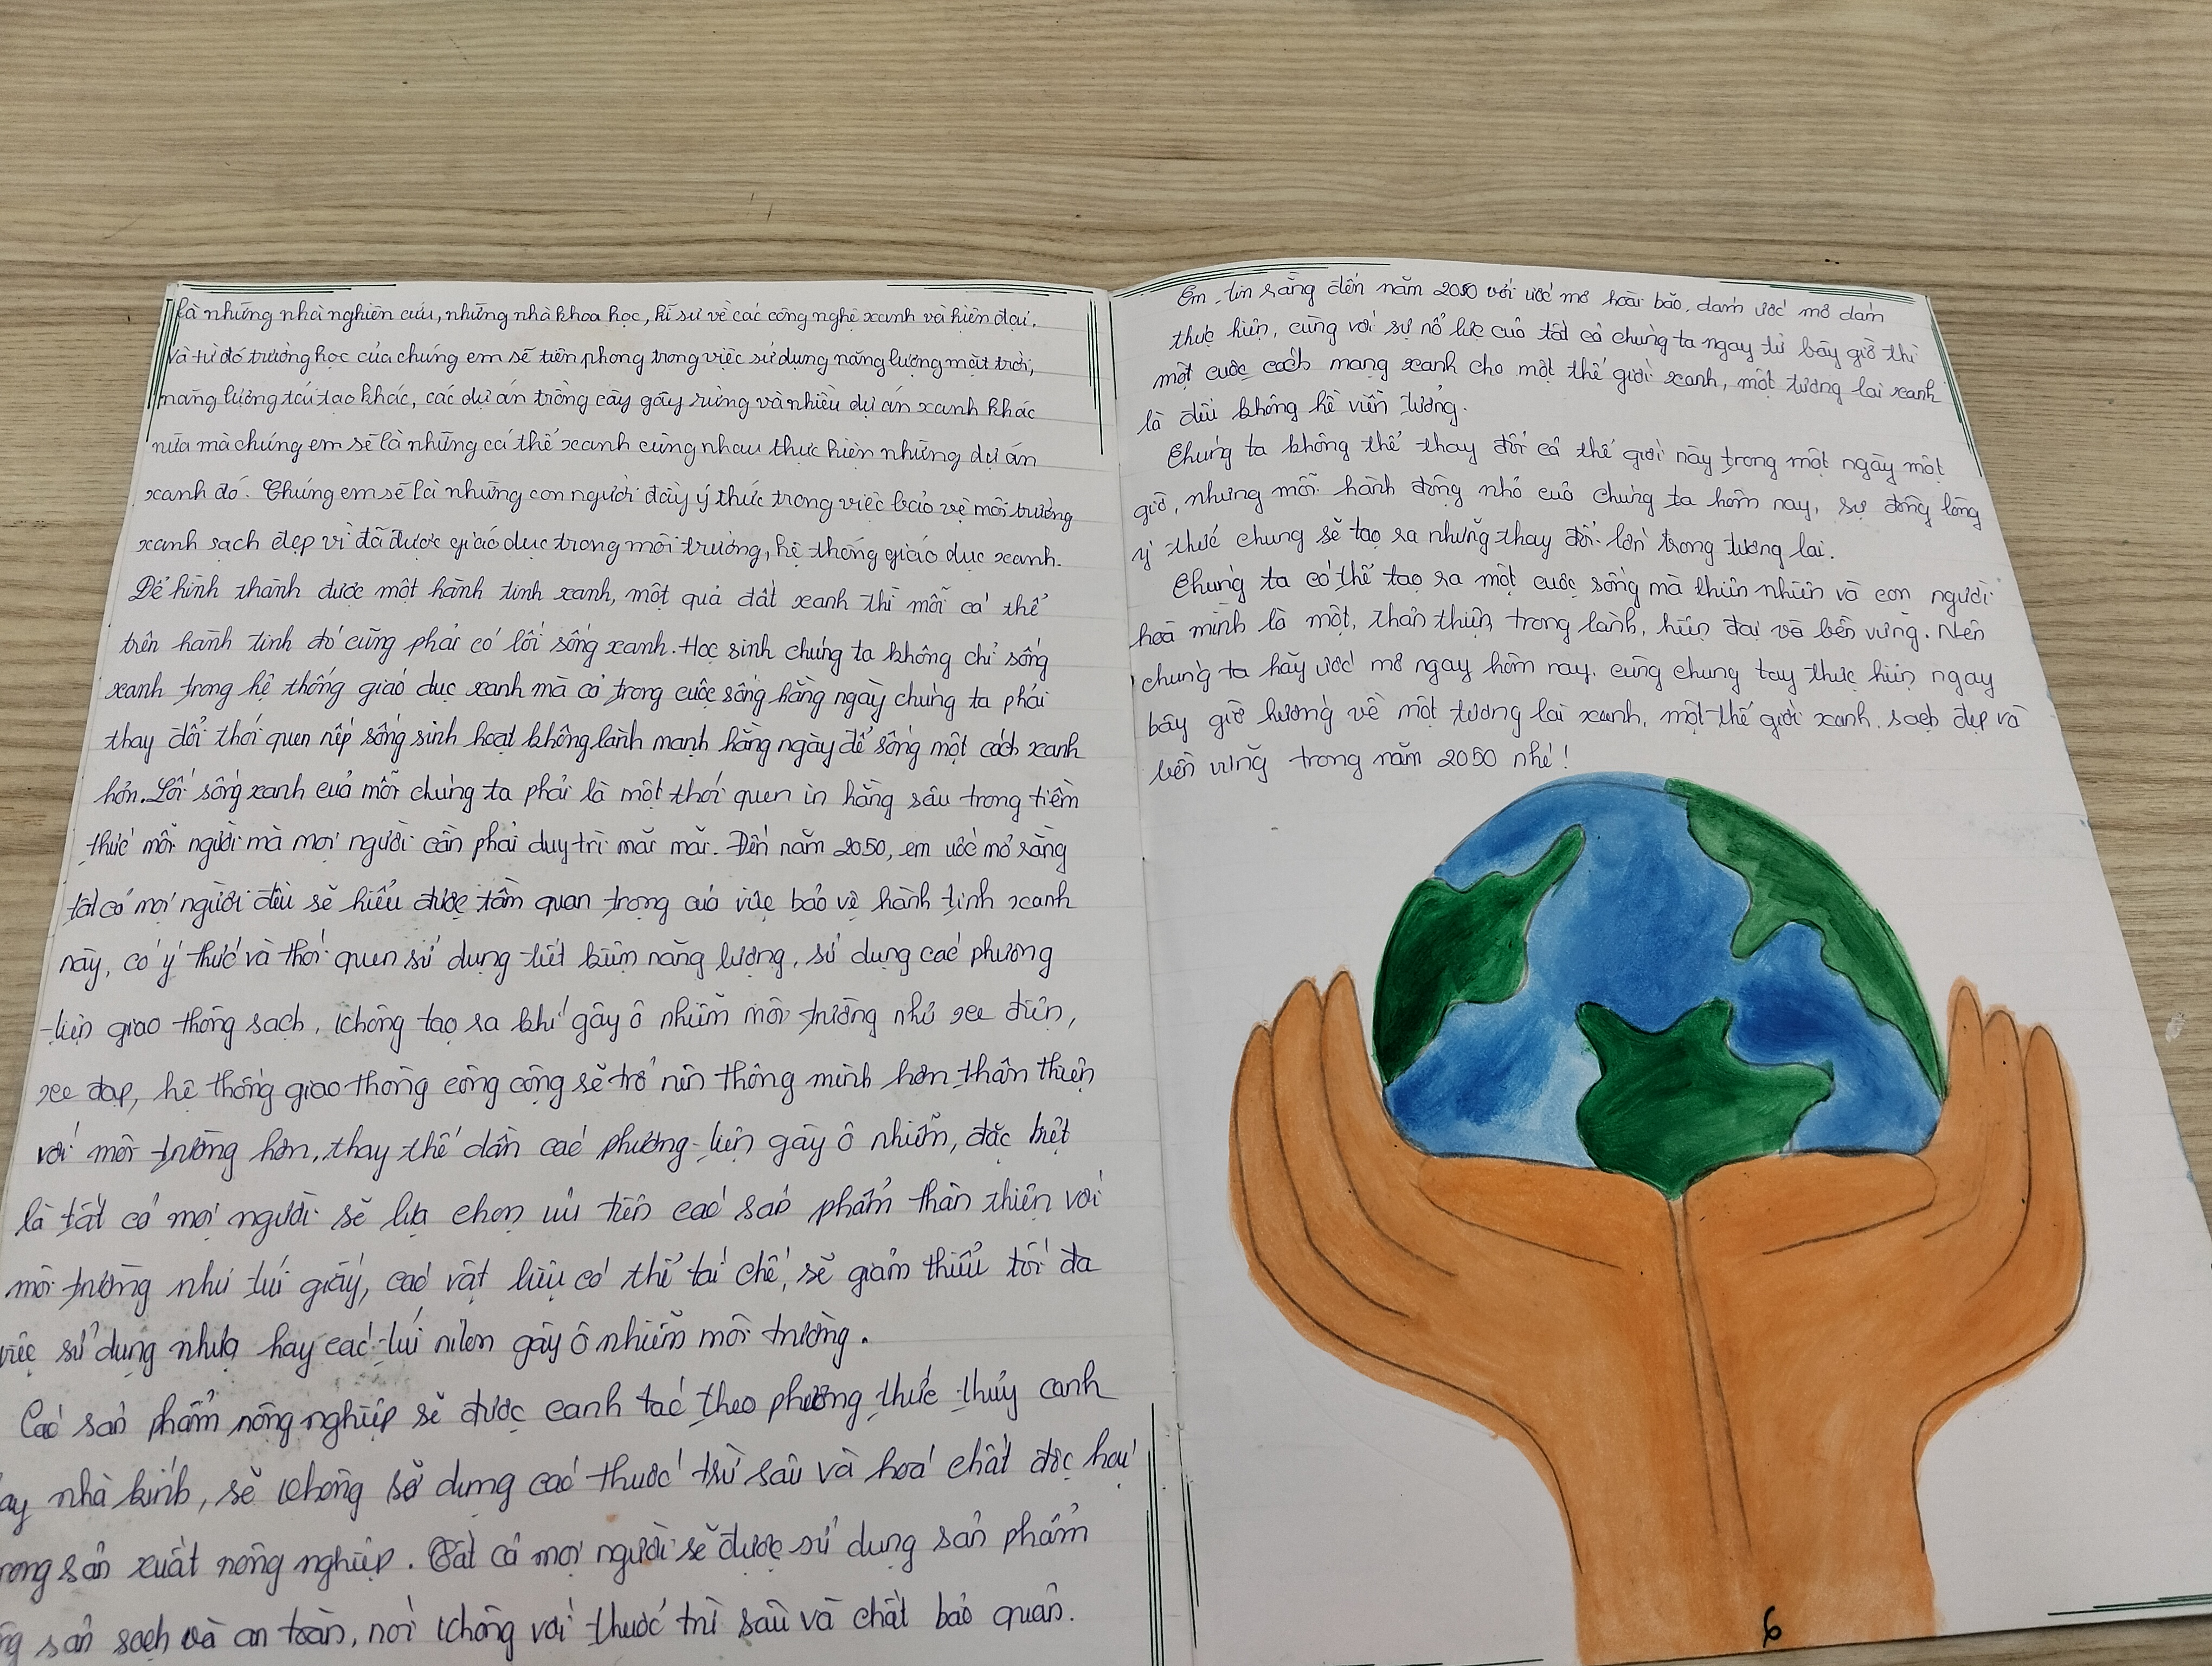 là những nhà nghiên cứu, những nhà khoa học, kĩ sư về các công nghệ xanh và hiện đại.
Và từ đó trường học của chúng em sẽ tiên phong trong việc sử dụng năng lượng mặt trời,
năng lượng tái tạo khác, các dự án trồng cây gây rừng và nhiều dự án xanh khác
nữa mà chúng em sẽ là những cá thể xanh cùng nhau thực hiện những dự án
xanh đó. Chúng em sẽ là những con người đầy ý thức trong việc bảo vệ môi trường
xanh sạch đẹp vì đã được giáo dục trong môi trường, hệ thống giáo dục xanh.
Để hình thành được một hành tinh xanh, một quả đất xanh thì mỗi cá thể
trên hành tinh đó cũng phải có lối sống xanh. Học sinh chúng ta không chỉ sống
xanh trong hệ thống giáo dục xanh mà cả trong cuộc sống hằng ngày chúng ta phải
thay đổi thói quen nếp sống sinh hoạt không lành mạnh hằng ngày để sống một cách xanh
hơn. Lối sống xanh của mỗi chúng ta phải là một thói quen in hằng sâu trong tiềm
thức mỗi người mà mọi người cần phải duy trì mãi mãi. Đến năm 2050, em ước mơ rằng
tất cả mọi người đều sẽ hiểu được tầm quan trọng của việc bảo vệ hành tinh xanh
này, có ý thức và thói quen sử dụng tiết kiệm năng lượng, sử dụng các phương
tiện giao thông sạch, không tạo ra khí gây ô nhiễm môi trường như xe điện,
xe đạp, hệ thống giao thông công cộng sẽ trở nên thông minh hơn thân thiện
với môi trường hơn, thay thế dần các phương tiện gây ô nhiễm, đặc biệt
là tất cả mọi người sẽ lựa chọn ưu tiên các sản phẩm thân thiện với
môi trường như túi giấy, các vật liệu có thể tái chế, sẽ giảm thiểu tối đa
việc sử dụng nhựa hay các túi nilon gây ô nhiễm môi trường.
Các sản phẩm nông nghiệp sẽ được canh tác theo phương thức thủy canh
ay nhà kính, sẽ không sử dụng các thuốc trừ sâu và hoá chất độc hại
rong sản xuất nông nghiệp. Tất cả mọi người sẽ được sử dụng sản phẩm
ng sản sạch và an toàn, nói không với thuốc trừ sâu và chất bảo quản.
Em tin rằng đến năm 2050 với ước mơ hoài bão, dám ước mơ dám
thực hiện, cùng với sự nỗ lực của tất cả chúng ta ngay từ bây giờ thì
một cuộc cách mạng xanh cho một thế giới xanh, một tương lai xanh
là điều không hề viễn tưởng.
Chúng ta không thể thay đổi cả thế giới này trong một ngày một
giờ, nhưng mỗi hành động nhỏ của chúng ta hôm nay, sự đồng lòng
ý thức chung sẽ tạo ra những thay đổi lớn trong tương lai.
Chúng ta có thể tạo ra một cuộc sống mà thiên nhiên và con người
hoà mình là một, thân thiện, trong lành, hiện đại và bền vững. Nên
chúng ta hãy ước mơ ngay hôm nay, cùng chung tay thực hiện ngay
bây giờ hướng về một tương lai xanh, một thế giới xanh, sạch đẹp và
bền vững trong năm 2050 nhé!
6